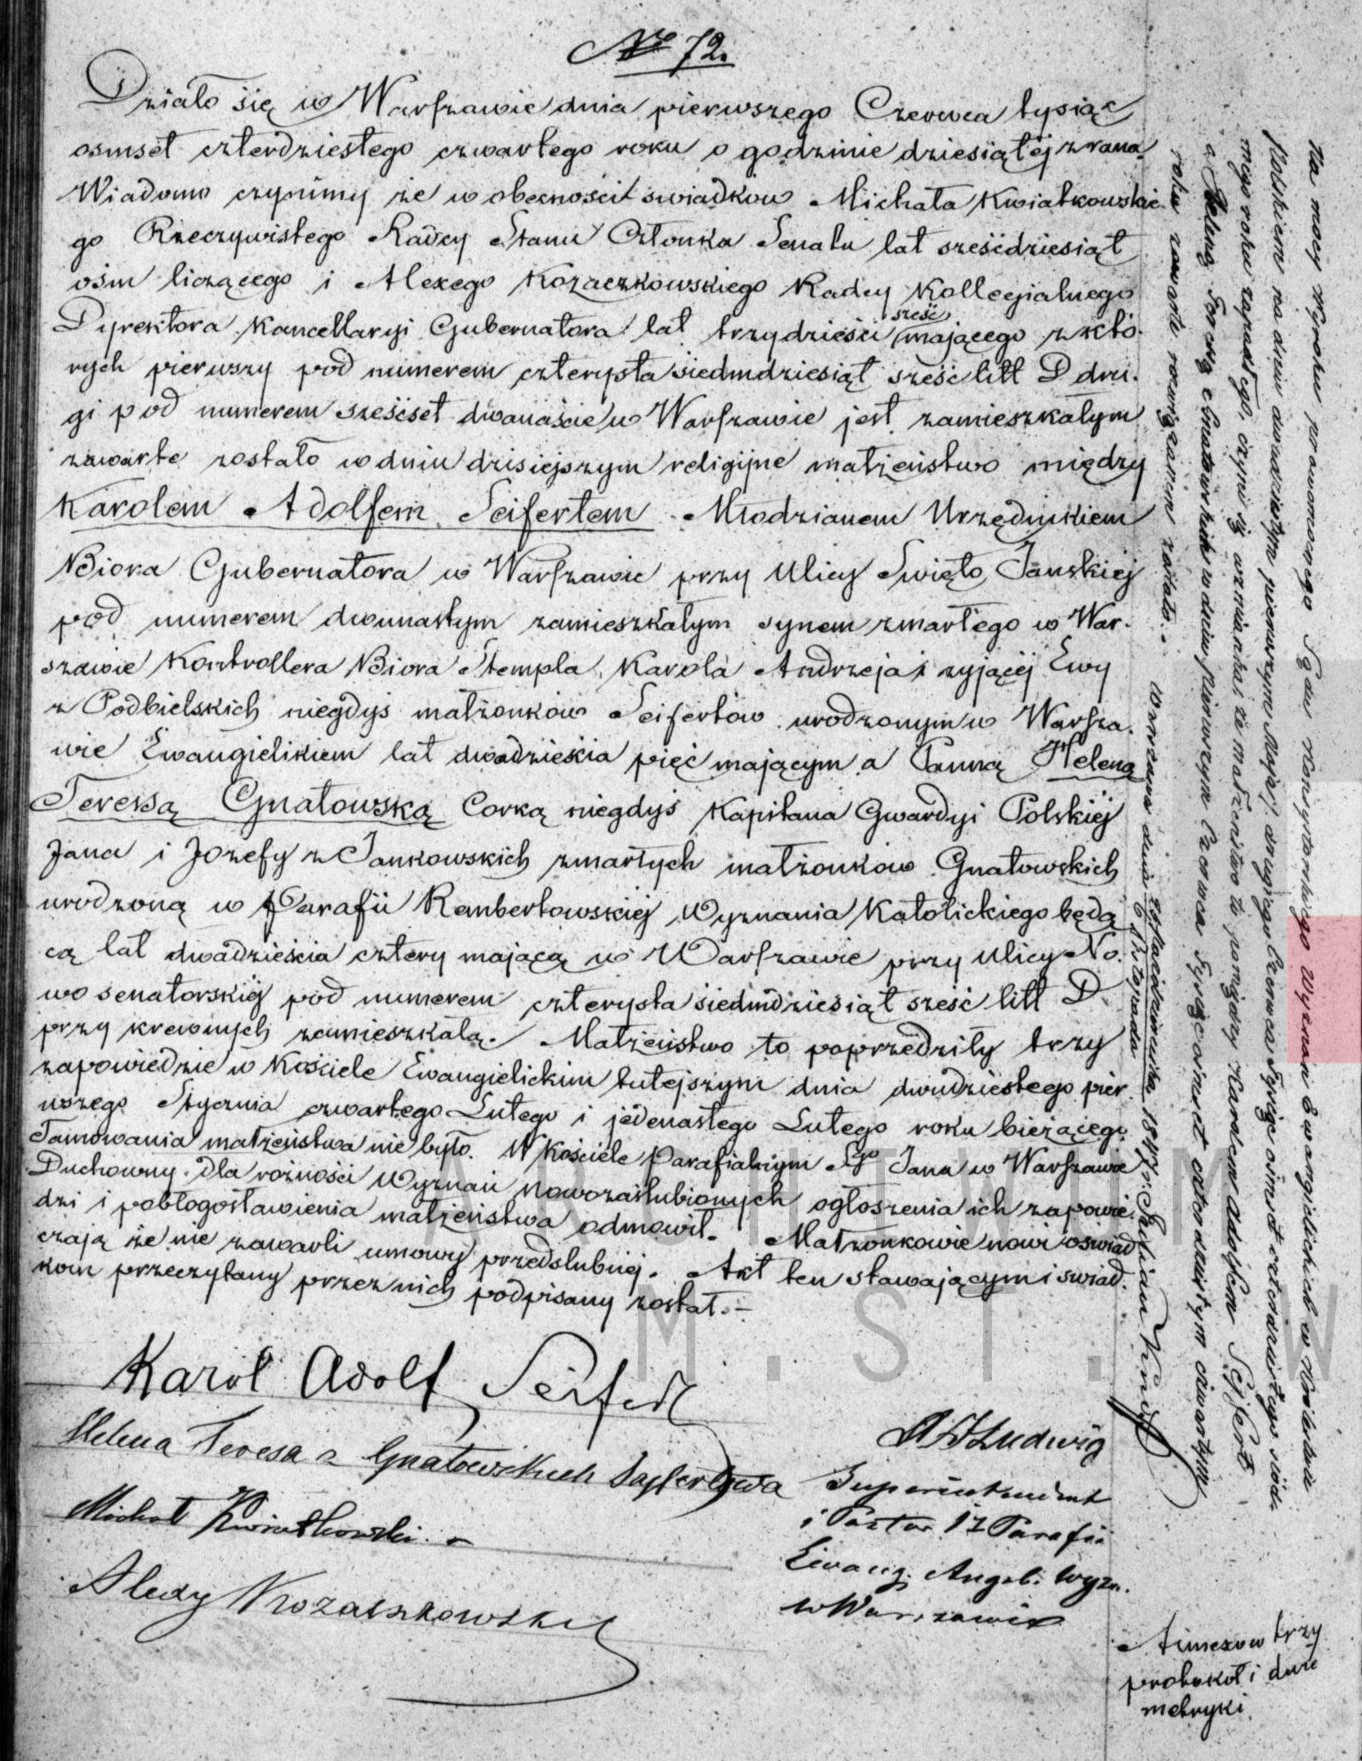 № 72.
Działo się w Warszawie dnia pierwszego Czerwca tysiąc
osmset czterdziestego czwartego roku o godzinie dziesiątej zrana
Wiadomo czynimy że w obecności swiadkow Michała Kwiatkowskie
go Rzeczywistego Radcy Stanu Członka Senatu lat sześćdziesiąt
ośm liczącego i Alexego Kozaczkowskiego Radcy Kollegialnego
Dyrektora Kancellaryi Gubernatora lat trzydzieści sześć mającego z któ-
rych pierwszy pod numerem czterysta siedmdziesiąt sześć litt D dru-
gi pod numerem sześcset dwanaście w Warszawie jest zamieszkałym
zawarte zostało w dniu dzisiejszym religijne małżeństwo między
Karolem Adolfem Seifertem Młodzianem Urzędnikiem
Biora Gubernatora w Warszawie przy Ulicy Swięto Janskiej
pod numerem dwunastym zamieszkałym synem zmarłego w War-
szawie Kontrollera Biora Stempla Karola Andrzeja i żyjącéj Ewy
z Podbielskich niegdys małżonkow Seifertow urodzonym w Warsza-
wie Ewangielikiem lat dwadzieścia pięć mającym a Panną Heleną
Teressą Gnatowską Corką niegdyś Kapitana Gwardyi Polskiéj
Jana i Jozefy z Jankowskich zmarłych małżonków Gnatowskich
urodzoną w Parafii Rembertowskiéj Wyznania Katolickiego będą
cą lat dwadzieścia cztery mającą w Warszawie przy Ulicy No
wo senatorskiéj pod numerem czterysta siedmdziesiąt sześć litt D
przy krewnych zamieszkałą. Małżeństwo to poprzedziły trzy
zapowiedzie w Kościele Ewangielickim tutejszym dnia dwudziestego pier
wszego Stycznia czwartego Lutego i jedenastego Lutego roku bieżącego
Tamowania małżeństwa nie było. W Kościele Parafialnym Sgo Jana w Warszawie
Duchowny dla rożności Wyznań Nowozaślubionych ogłoszenia ich zapowie
dzi i pobłogosławienia małżeństwa odmowił. Małżonkowie nowi oswiad
czają że nie zawarli umowy przedslubnéj. Akt ten stawającym i swiad-
kom przeczytany przez nich podpisany został.
Karol Adolf Seifert
Helena Teresa z Gnatowskich Sayfertowa
Michał Kwiatkowski
Alexy Kozaczkowski
A Ludwig
Superintendent
i Pastor Parafii
Ewang. Augsb. Wyzn.
w Warszawie
Na mocy Wyroku prawomocnego Sądu Konsystorskiego Wyznań Ewangielickich w Królestwie
Polskiem na dniu dwudziestym pierwszym Maja drugiego Czerwca tysiąc ośmset czterdziestego siód-
mego roku zapadłego, czyni się wzmianka, że małżeństwo to pomiędzy Karolem Adolfem Seyfert
a Heleną Teressą Gnatowskich w dniu pierwszym Czerwca tysiąc ośmset czterdziestym czwartym
roku zawarte rozwiązaniem zostało.
Warszawa dnia Października 6 Listopada 1847 r. Julian
Anexow trzy
protokół i dwie
metryki
ARCHIWUM
M. ST. W